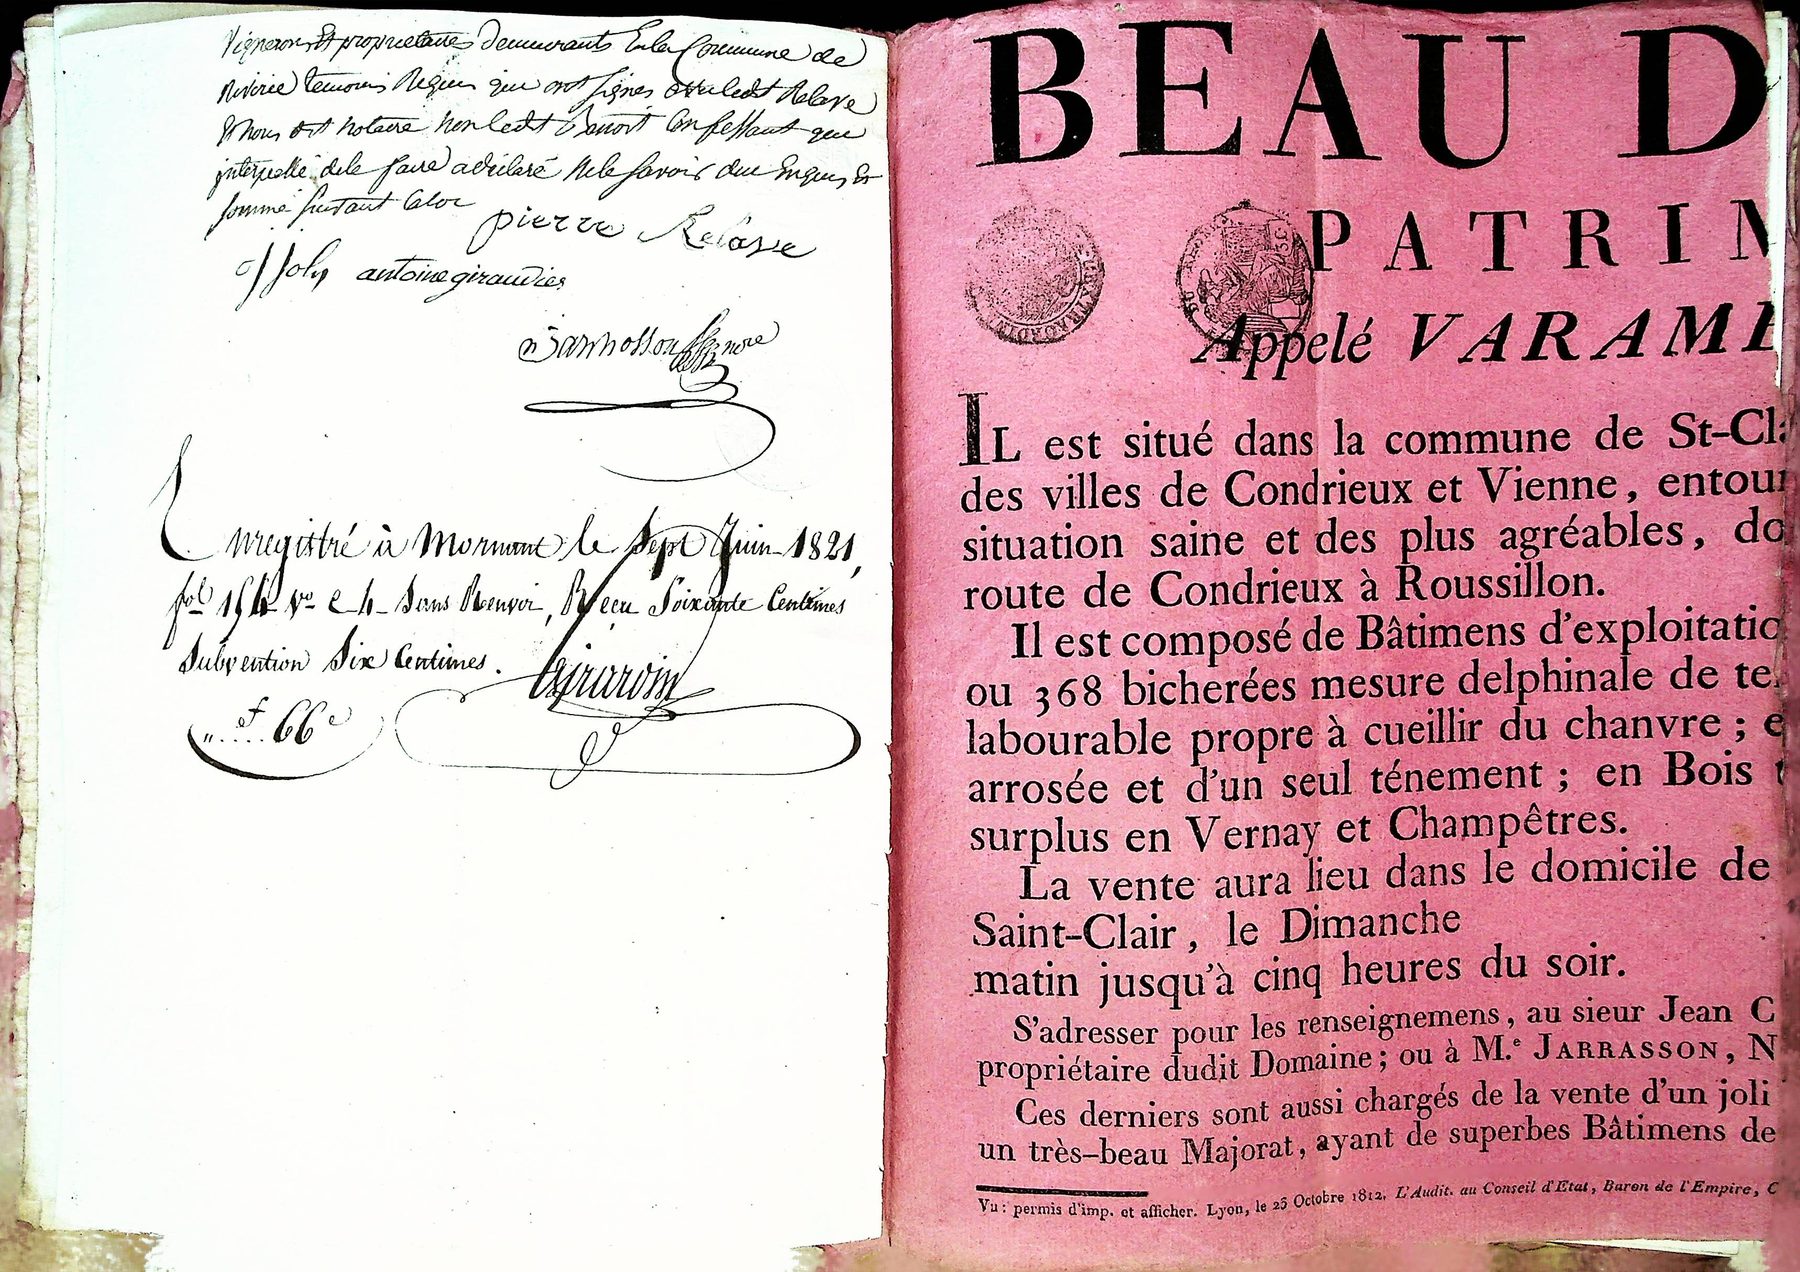 Vignerons Et proprietaires demeurants En la Commune de
Riverie temoins Requis qui ont signés avec ledt Relave
Et nous dit notaire non ledt Benoit Confessant que
interpellé de le faire a déclaré ne le savoir duement Enquis Et
sommé
pierre Relave
antoine giraudier
Enregistré à Mornant le Sept Juin 1821,
fol 154 vo c 4 Sans Renvoi, Reçu Soixante Centimes
Subvention Six Centimes.
Girardin
66 c
BEAU D
PATRIM
Appelé VARAME
IL est situé dans la commune de St-Cla
des villes de Condrieux et Vienne, entour
situation saine et des plus agréables, do
route de Condrieux à Roussillon.
Il est composé de Bâtimens d'exploitatio
ou 368 bicherées mesure delphinale de te
labourable propre à cueillir du chanvre ; e
arrosée et d'un seul ténement ; en Bois t
surplus en Vernay et Champêtres.
La vente aura lieu dans le domicile de
Saint-Clair, le Dimanche
matin jusqu'à cinq heures du soir.
S'adresser pour les renseignemens, au sieur Jean C
propriétaire dudit Domaine ; ou à M.e JARRASSON, N
Ces derniers sont aussi chargés de la vente d'un joli
un très-beau Majorat, ayant de superbes Bâtimens de
Vu : permis d'imp. et afficher. Lyon, le 23 Octobre 1812. L'Audit. au Conseil d'Etat, Baron de l'Empire, C